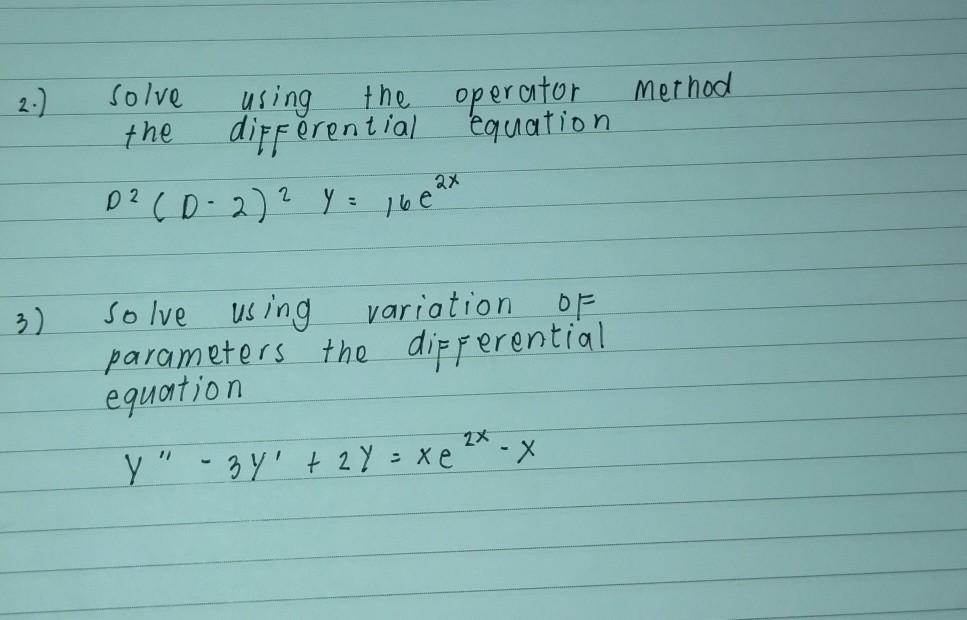 2.) Solve using the operator method
the differential equation
D² (D - 2)² y = 16e²ˣ
3) Solve using variation of
parameters the differential
equation
y" - 3y' + 2y = xe²ˣ - x